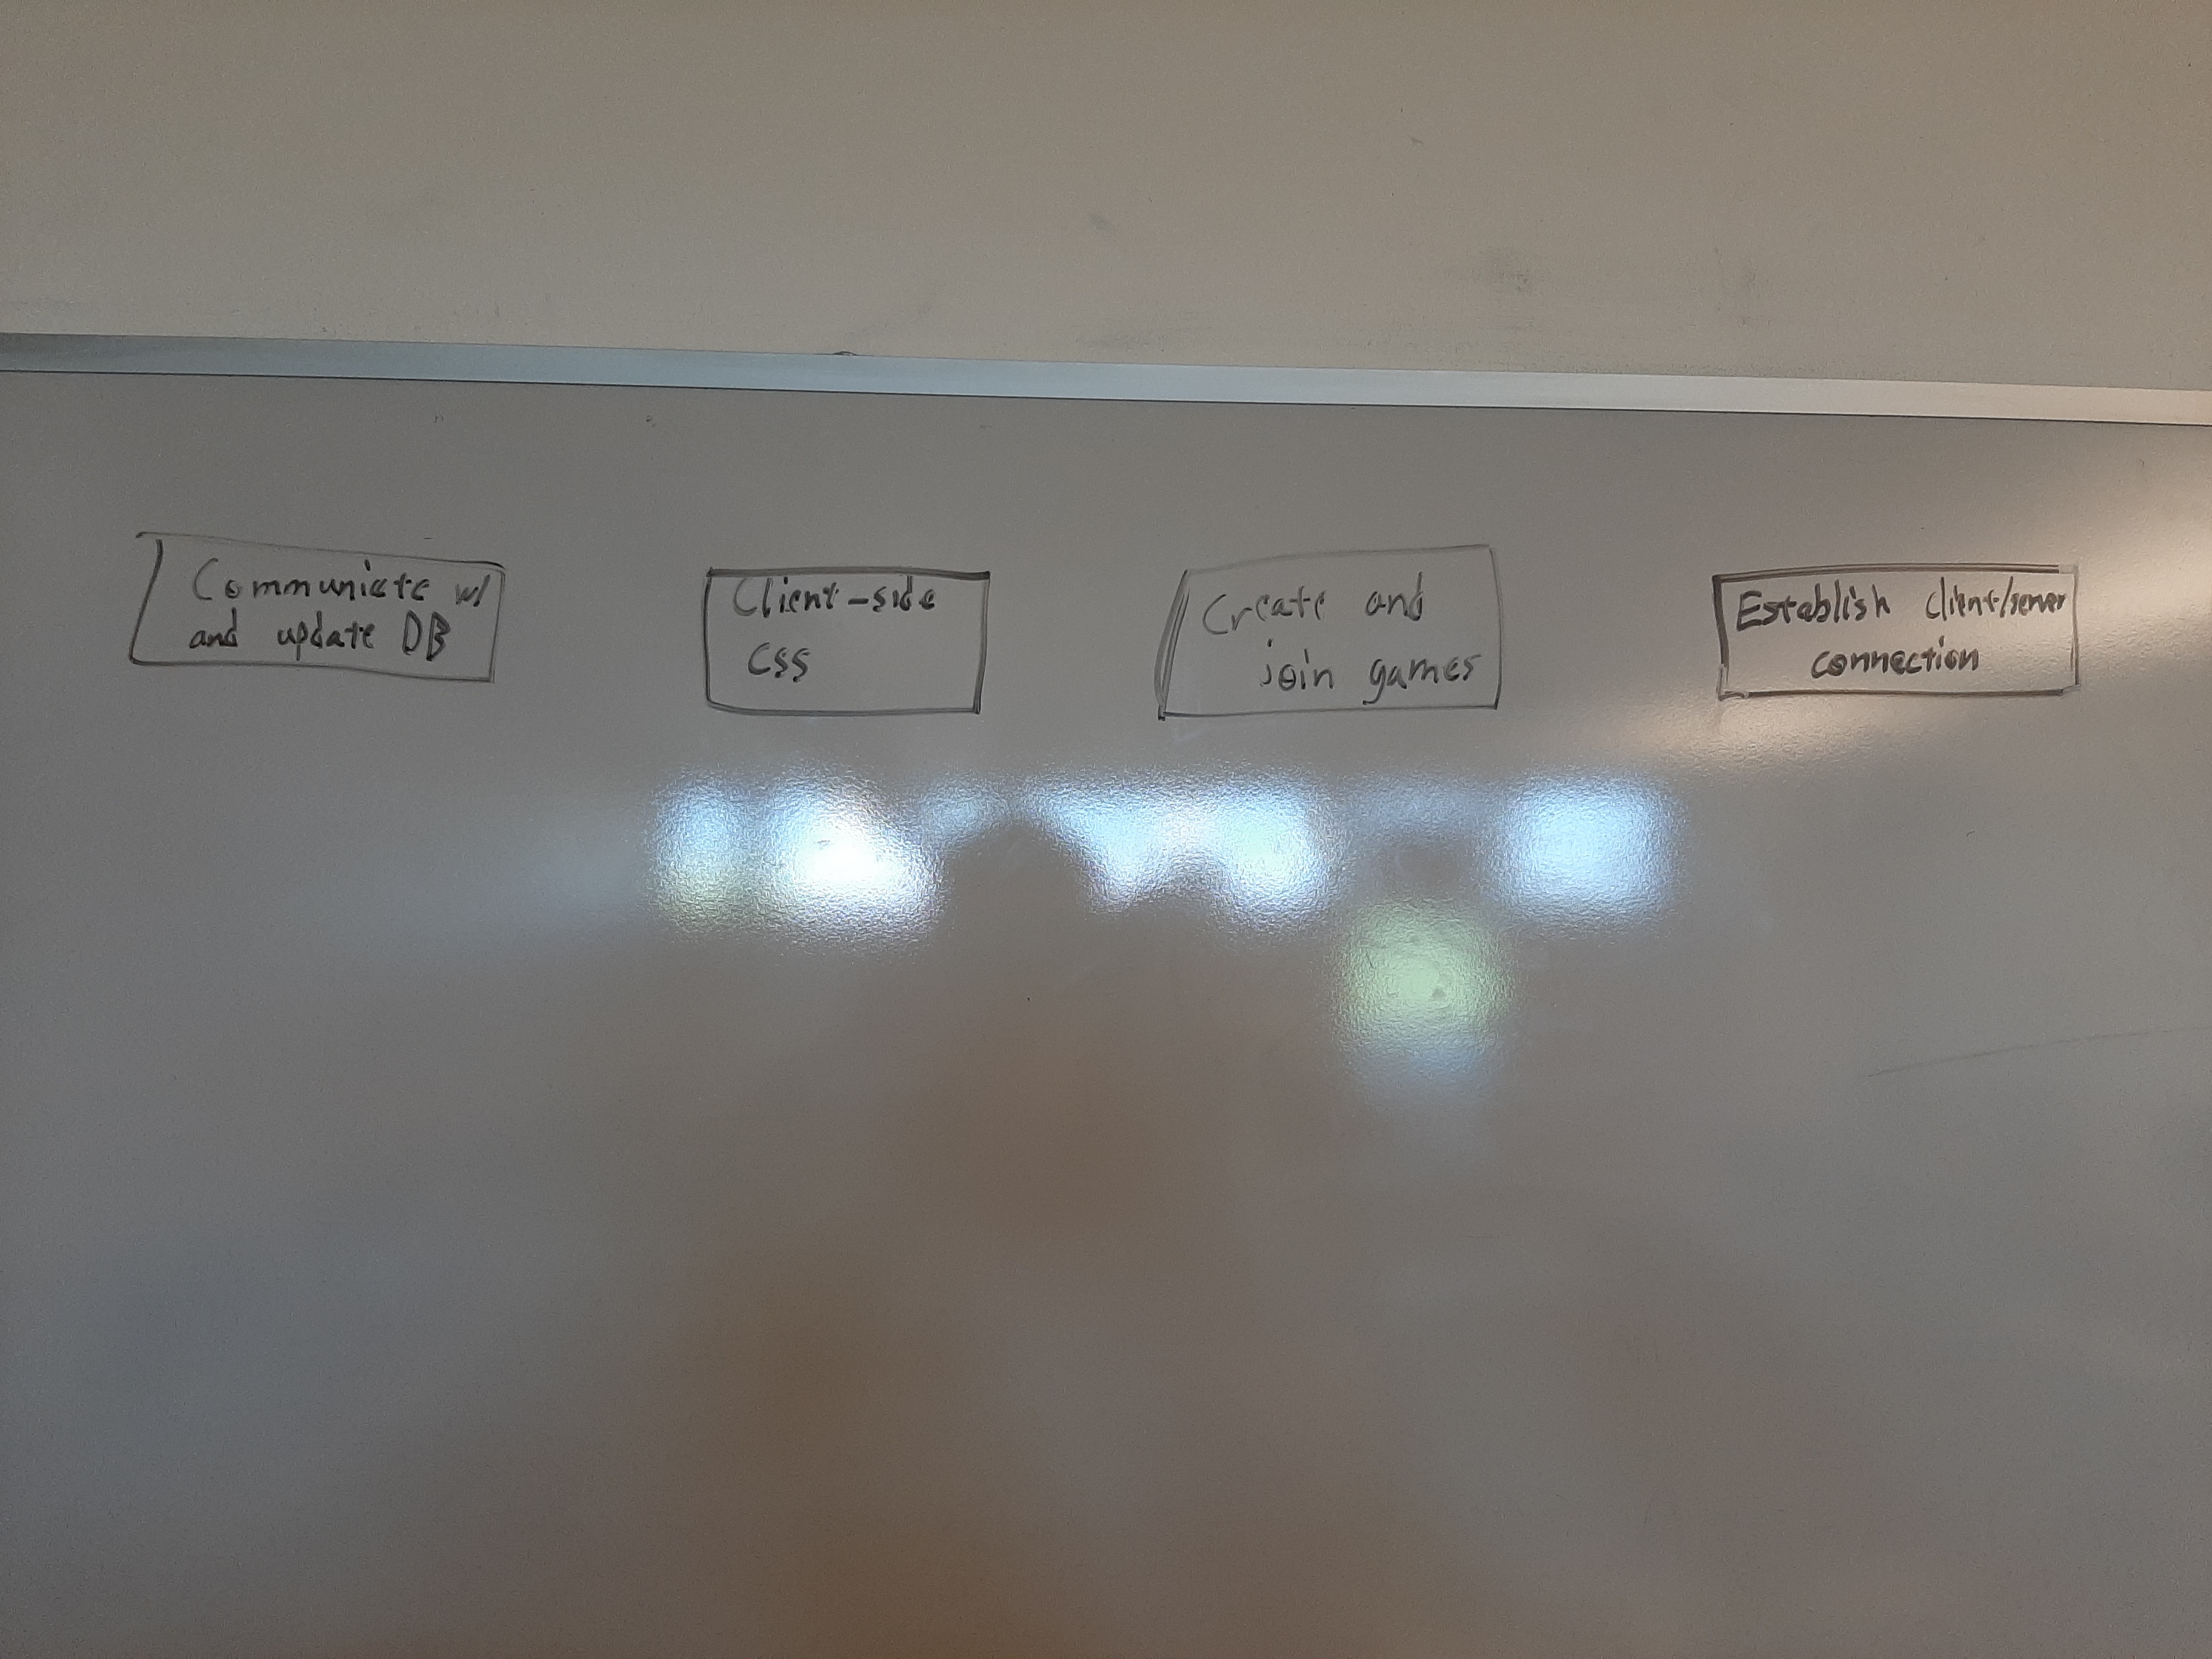 Communicate w/
and update DB
Client-side
CSS
Create and
join games
Establish client/server
connection